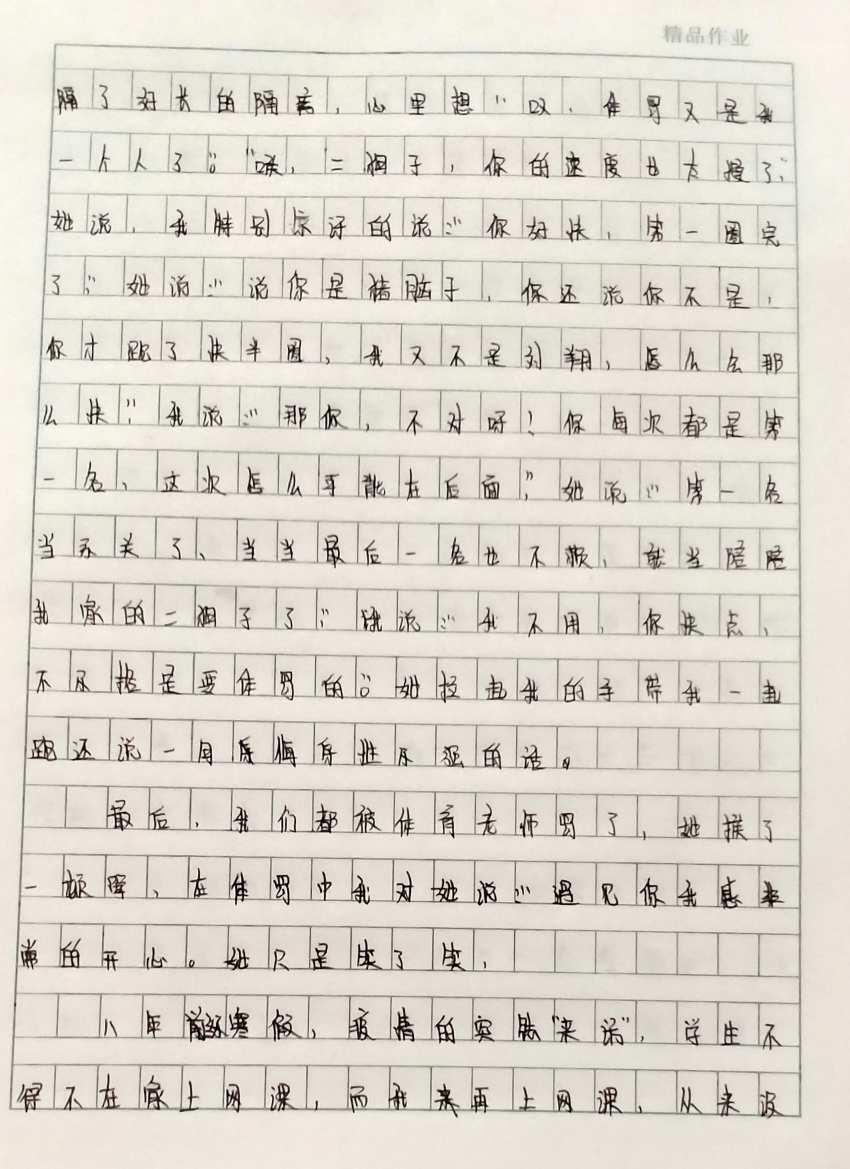 精品作业
隔了好长的隔离，心里想：“哎，体罚又是我
一个人了。”“唉，二胡子，你的速度也太慢了”
她说，我特别惊讶的说：“你好快，第一圈完
了”她说：“说你是猪脑子，你还说你不是，
你才跑了快半圈，我又不是刘翔，怎么么那
么快”我说：“那你，不对呀！你每次都是第
一名、这次怎么可能在后面”，她说：“第一名
当不关了、当当最后一名也不赖，就当陪陪
我家的二胡子了”我说：“我不用，你快点，
不尽接是要体罚的。”她拉起我的手带我一起
跑还说一句的话。
最后，我们都被体育老师罚了，她挨了
一顿，在体罚中我对她说：“遇见你我感非
常的开心。她只是笑了笑，
八年寒假，疫情的突然“来访”，学生不
得不在家上网课，而我来再上网课，从来没